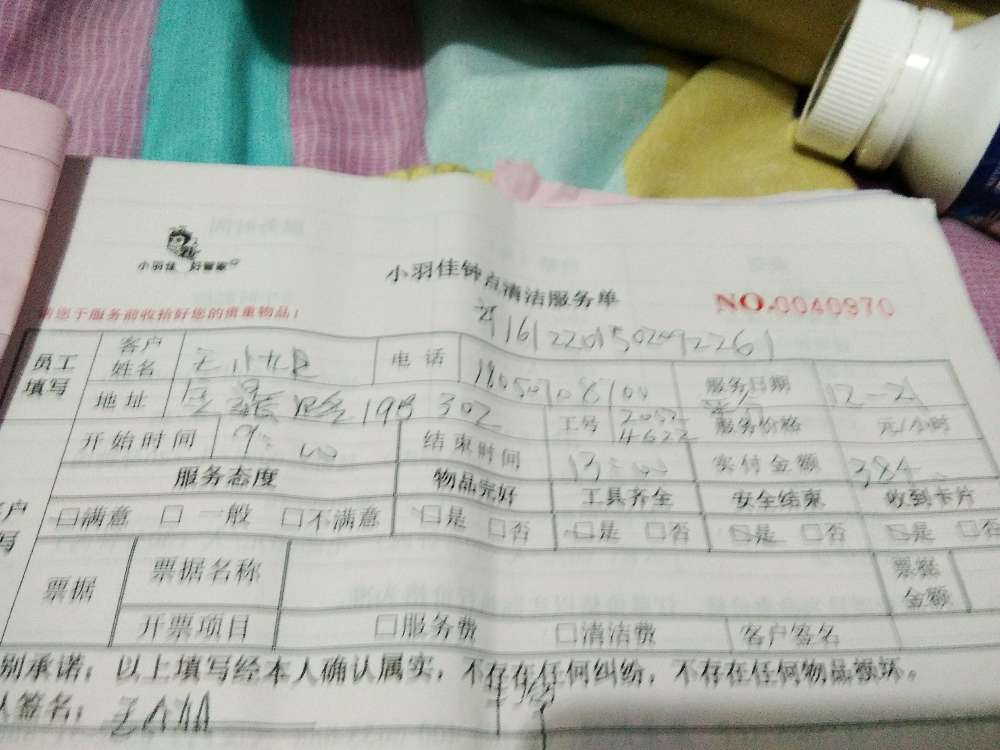 小羽佳 好管家
小羽佳钟点清洁服务单
NO.0040970
请您于服务前收拾好您的贵重物品!
员工填写
客户姓名
电话
服务日期 12-21
地址
路198 302
工号 2052 4622
服务价格 元/小时
开始时间 9:00
结束时间 13:00
实付金额 384
服务态度 物品完好 工具齐全 安全结束 收到卡片
□满意 □一般 □不满意 □是 □否 □是 □否 □是 □否 □是 □否
票据
票据名称
票据金额
开票项目 □服务费 □清洁费 客户签名
别承诺:以上填写经本人确认属实,不存在任何纠纷,不存在任何物品损坏。
人签名: